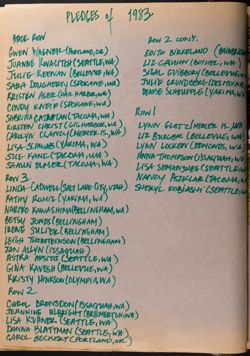 PLEDGES of 1983
BACK ROW
GWEN WAGNER (PORTLAND, OR.)
JOANNE KWALICH (SEATTLE, WA)
JULIE KEENAN (BELLEVUE, WA)
SARA DOUGHERTY (SPOKANE, WA)
KRISTIN AGER (OAK HARBOR, WA)
CINDY (SPOKANE, WA)
SABRINA (TACOMA, WA)
KIRSTEN CHRIST (GIG HARBOR, WA)
CAROLYN CLANCY (MERCER IS., WA)
LISA (YAKIMA, WA)
SUE KANE (TACOMA, WA)
SHAUN ELMER (TACOMA, WA)
ROW 3
LINDA CALDWELL (SALT LAKE CITY, UTAH)
KATHY ROMIE (YAKIMA, WA)
NARIKO KAWASHIMA (BELLINGHAM, WA)
BETSY JONES (BELLINGHAM)
IRENE (BELLINGHAM)
LEIGH THORSTENSON (BELLINGHAM)
JAN ALLYN (ISSAQUAH)
ASTRA (SEATTLE, WA)
GINA KAVESH (BELLEVUE, WA)
KRISTY HINKSON (OLYMPIA, WA)
ROW 2
CAROL BRONSDON (ISSAQUAH, WA)
JEANNINE ULBRIGHT (BREMERTON, WA)
LISA KUHNER (SEATTLE, WA)
DANNA BLATTMAN (SEATTLE, WA)
CAROL BECKERT (PORTLAND, OR.)
ROW 2 CONT.
EDITH BIRKELAND
LIZ GALVIN (BOTHELL, WA)
SIGAL GVIBERG (BELLEVUE,
JULIE GRUNDBERG (DES MOINES,
DENISE SCHEUFFELE (YAKIMA, WA)
ROW 1
LYNN GLITZ (MERCER IS., WA)
LIZ BURGER (BELLEVUE, WA)
LYNN LOCKERY (EDMONDS, WA)
ANNA THOMPSON (ISSAQUAH, WA)
LISA (SEATTLE, WA)
NANDY AZIKLAR (TACOMA, WA)
SHERYL KOBIASHI (SEATTLE, WA)